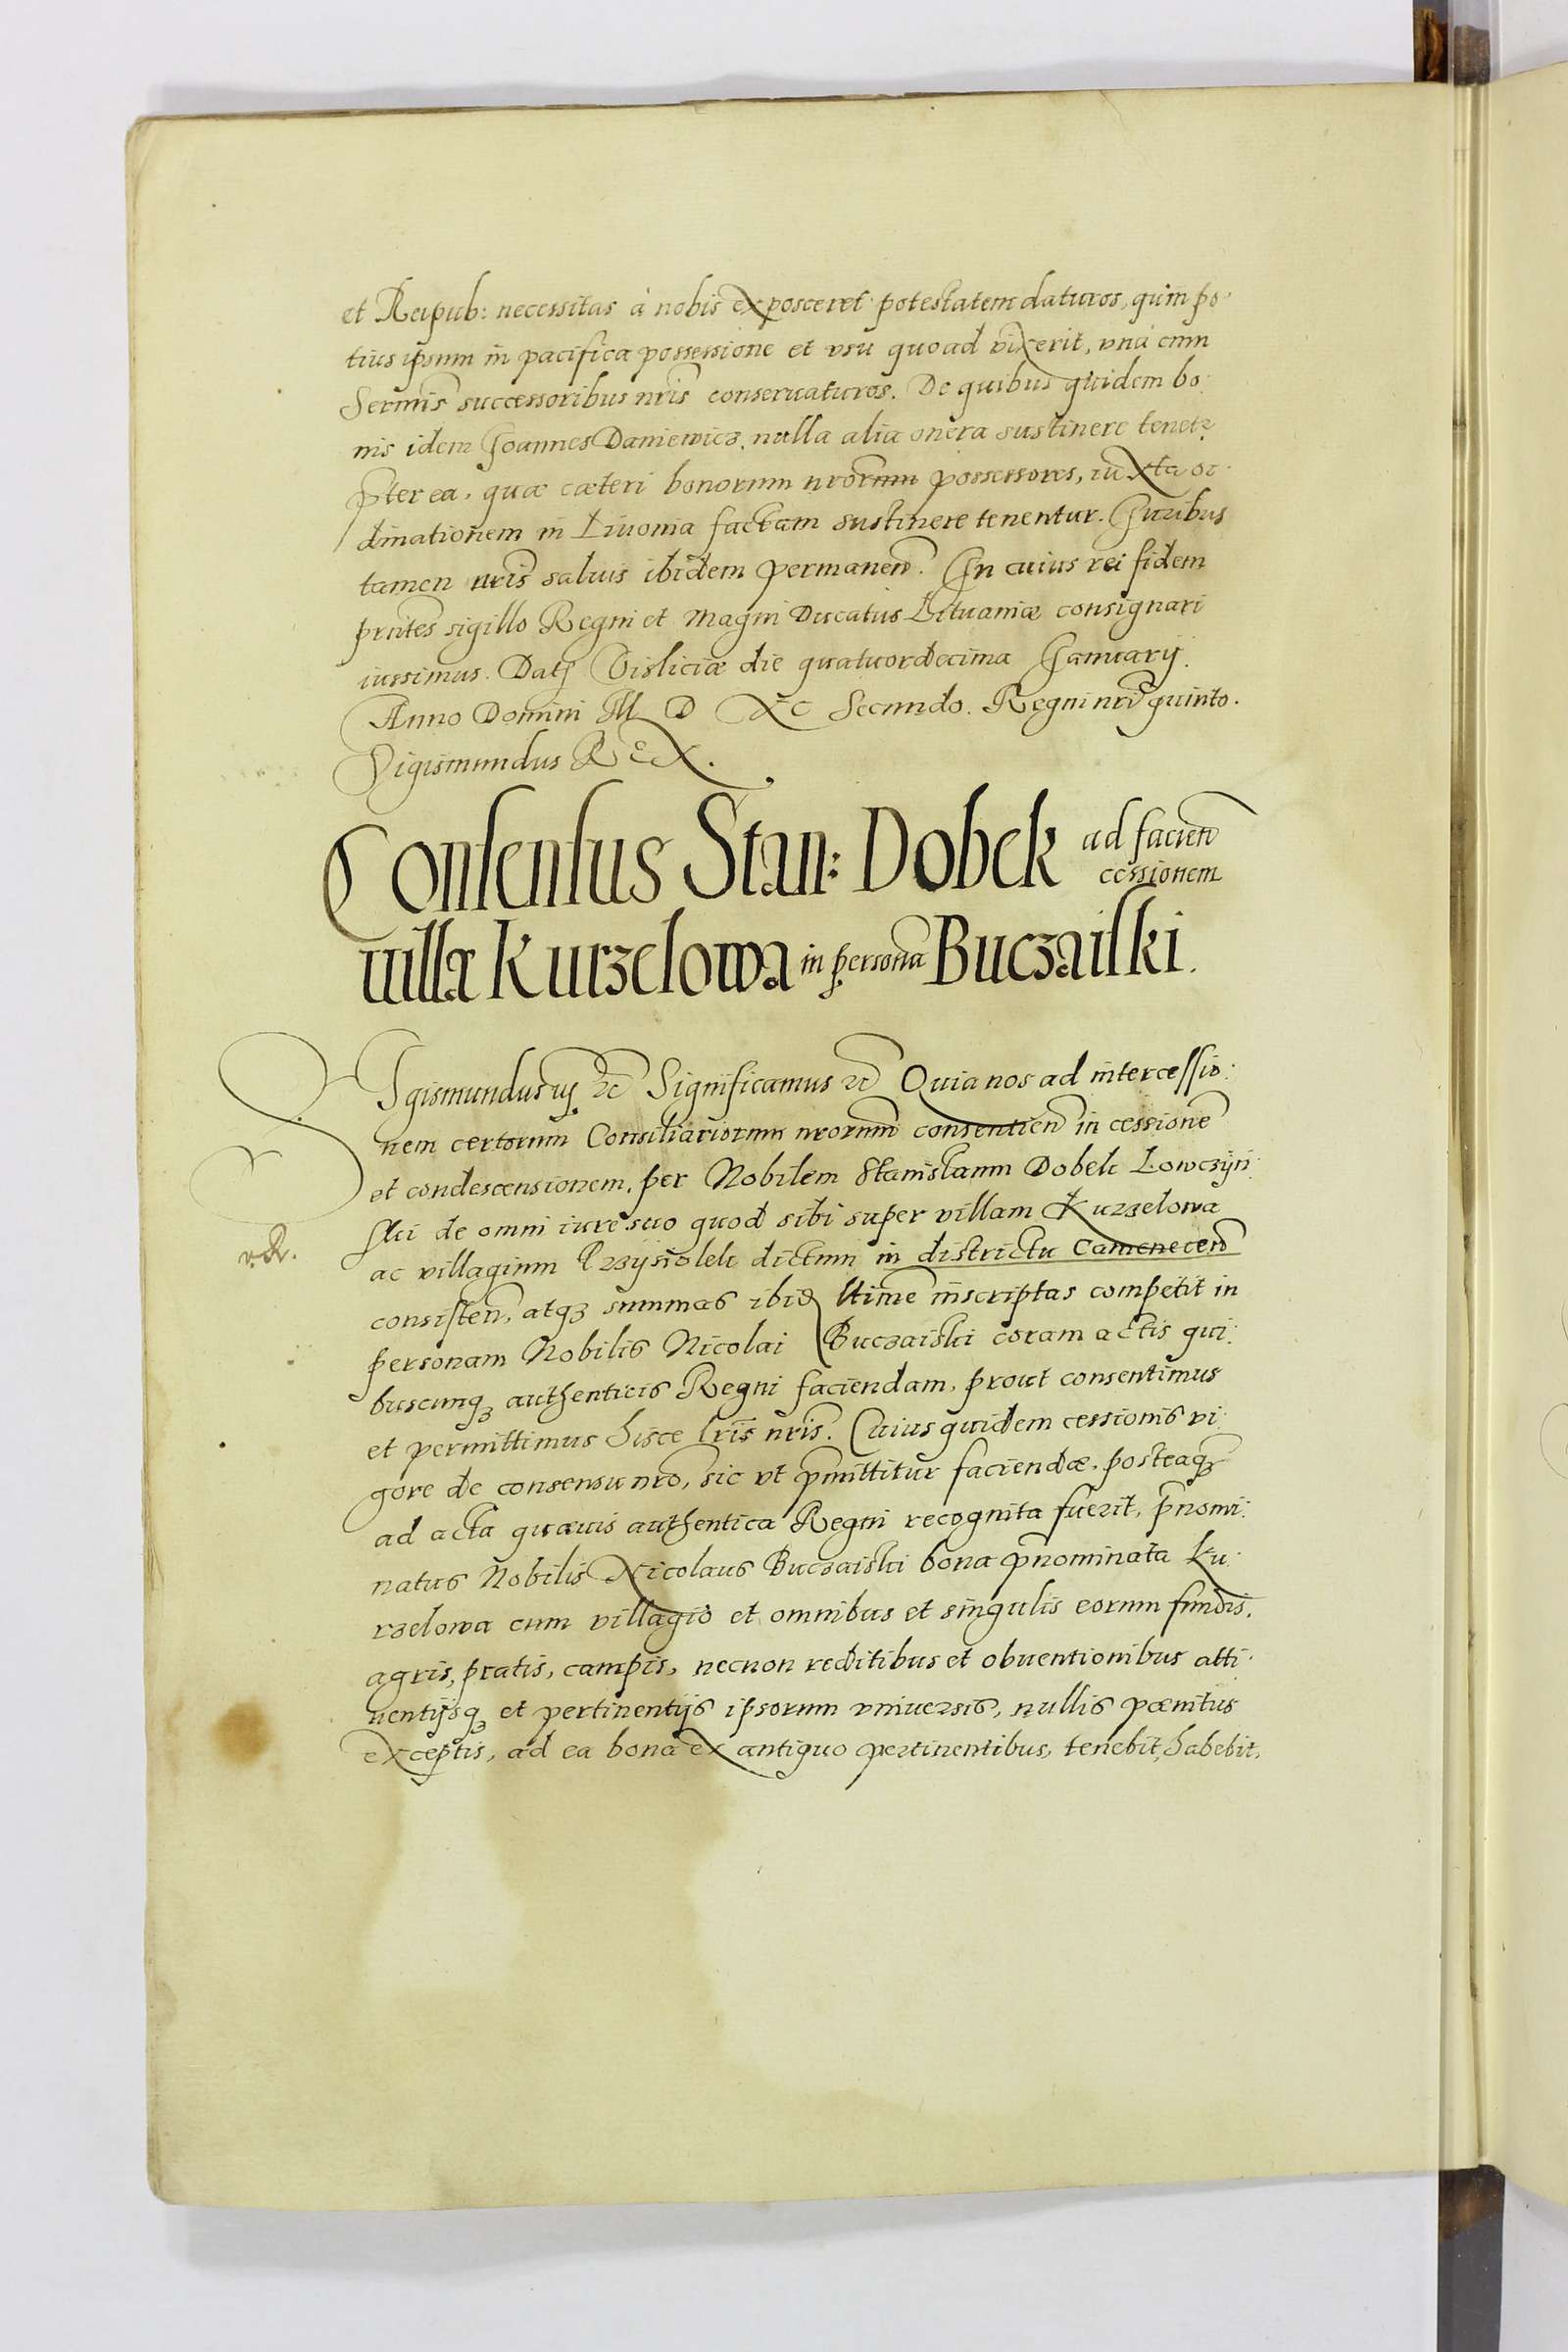 et Reipub: necessitas à nobis exposceret potestatem daturos, quin po-
tius ipsum in pacifica possessione et vsu quoad vixerit, vnà cum
Sermis successoribus nris conseruaturos. De quibus quidem bo-
nis idem Joannes Daniewicz, nulla alia onera sustinere tenetr
pter ea, quæ cæteri bonorum nrorum possessores, iuxta or-
dinationem in Liuonia factam sustinere tenentur. Juribus
tamen nris saluis ibidem permanen. In cuius rei fidem
pntes sigillo Regni et Magni Ducatus Lituaniæ consignari
iussimus. Dat Visliciæ die quatuordecima Januarij.
Anno Domini M D XC Secundo. Regni nri quinto.
Sigismundus REX.
Consensus Stan: Dobek ad facien cessionem
villæ Kurzelowa in persona Buczaiski.
SIgismundus iij etc Significamus etc Quia nos ad intercessio:
nem certorum Consiliariorum nrorum consentien in cessione
et condescensionem, per Nobilem Stanislaum Dobek Lowczyn:
ski de omni iure suo quod sibi super villam Kurzelowa
v.R.
ac villagium Przysiolek dictum in districtu Camenecen
consisten, atq3 summas ibid ltime inscriptas competit in
personam Nobilis Nicolai Buczaiski coram actis qui:
buscunq3 authenticis Regni faciendam, prout consentimus
et permittimus hisce lris nris. Cuius quidem cessionis vi:
gore de consensu nro, sic vt pmittitur faciendæ, posteaq3
ad acta quæuis authentica Regni recognita fuerit, pnomi:
natus Nobilis Nicolaus Buczaiski bona pnominata Ku:
rzelowa cum villagio et omnibus et singulis eorum fundis,
agris, pratis, campis, necnon reditibus et obuentionibus atti-
nentijsq3 et pertinentijs ipsorum vniuersis, nullis pœnitus
exceptis, ad ea bona ex antiquo pertinentibus, tenebit, habebit,